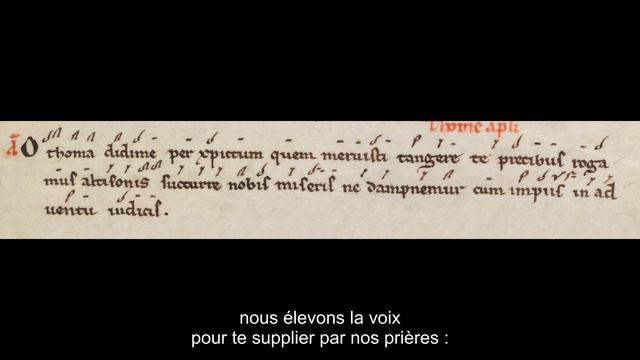 Thome apli
A O thoma didime per xpictum quem meruisti tangere te precibus roga
mus altisonis succurre nobis miseris ne dampnemur cum impiis in ad
uentu iudicis.
nous élevons la voix
pour te supplier par nos prières :